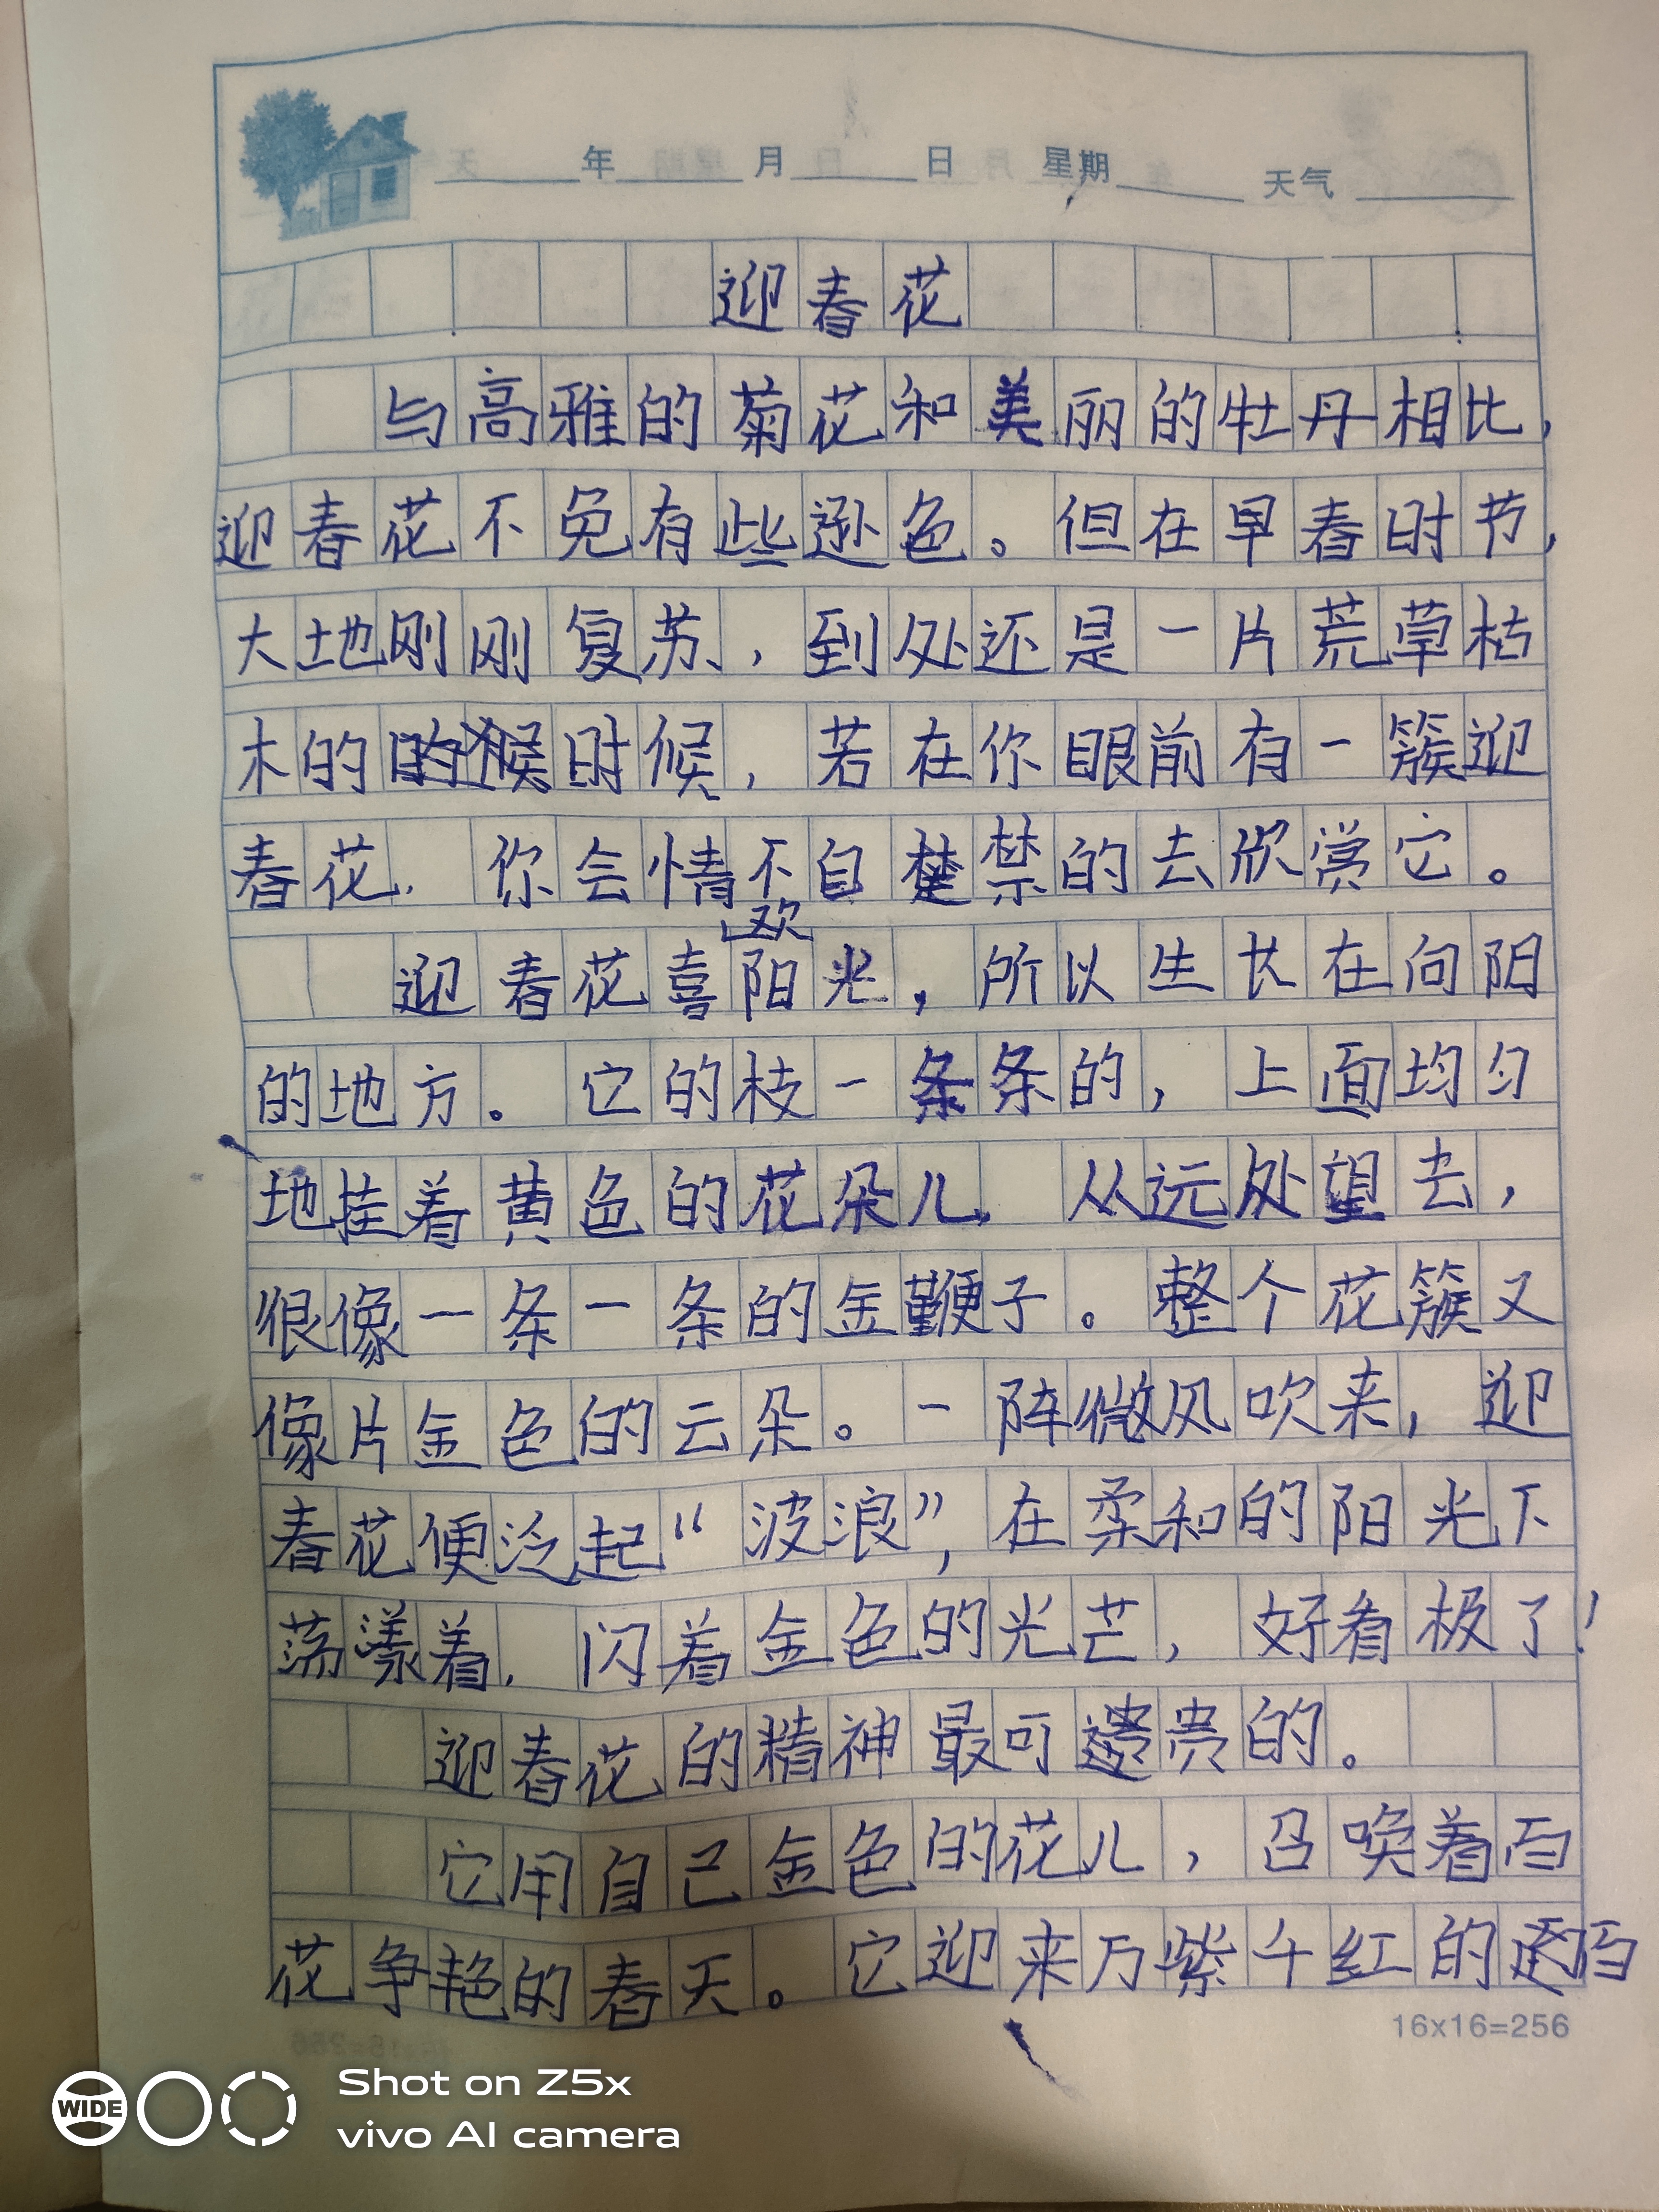 年 月 日 星期 天气
迎春花
与高雅的菊花和美丽的牡丹相比,
迎春花不免有些逊色。但在早春时节,
大地刚刚复苏,到处还是一片荒草枯
木的时候,若在你眼前有一簇迎
春花,你会情不自禁的去欣赏它。
迎春花喜欢阳光,所以生长在向阳
的地方。它的枝一条条的,上面均匀
地挂着黄色的花朵儿,从远处望去,
很像一条一条的金鞭子。整个花簇又
像片金色的云朵。一阵微风吹来,迎
春花便泛起“波浪”,在柔和的阳光下
荡漾着,闪着金色的光芒,好看极了!
迎春花的精神最可贵的。
它用自己金色的花儿,召唤着百
花争艳的春天。它迎来万紫千红的百
16x16=256
WIDE
Shot on Z5x
vivo AI camera